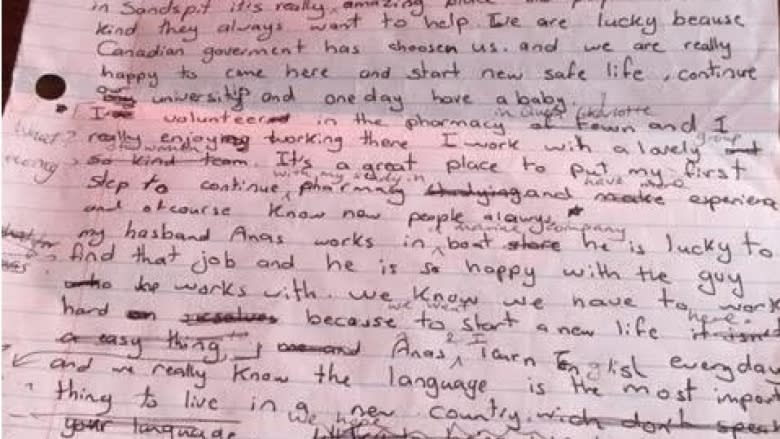 in Sandspit it's really amazing place
kind they always want to help. We are lucky beause
Canadian goverment has choosen us. and we are really
happy to came here and start new safe life, continue
university and one day have a baby.
in Queen Charlotte
I volunteered in the pharmacy of town and I
really enjoying working there I work with a lovely group
so kind team. It's a great place to put my first
with my study in have more
step to continue pharmacy studying and make experiena
and ofcourse know new people always
marine company
my husband Anas works in boat store he is lucky to
find that job and he is so happy with the guy
who he works with. we know we have to work
we want here.
hard because to start a new life it isn't
a easy thing, Anas & I learn English everyday
and we really know the language is the most impor
thing to live in a new country. wich don't speak
we hope
your language